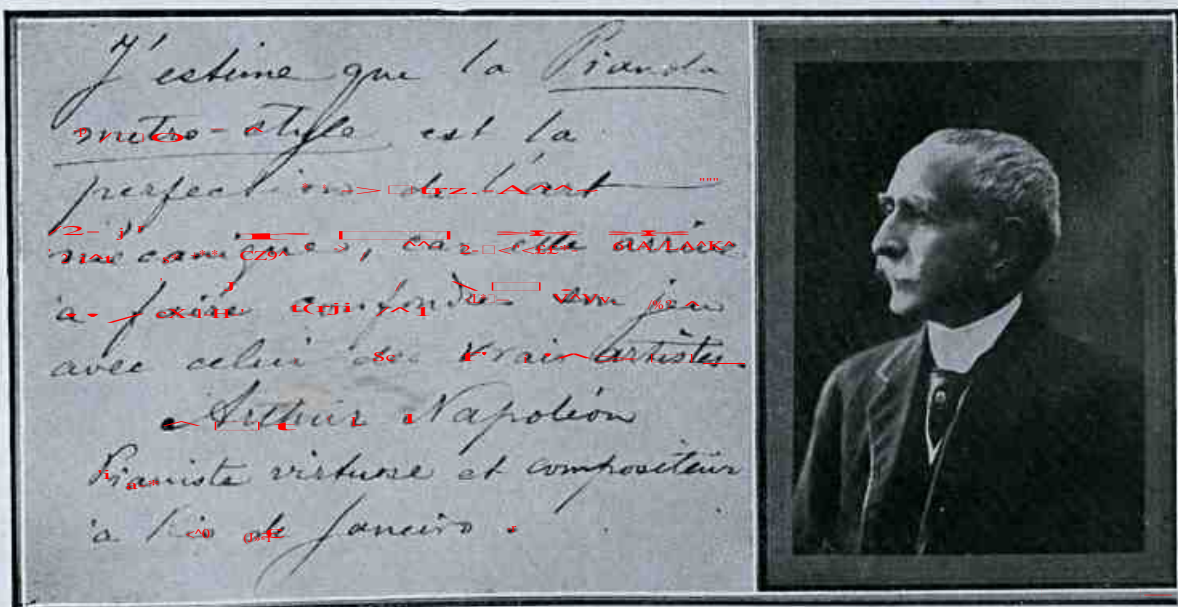 J'estime que la Pianola
metro-style est la
perfection de l'art
mécanique, car elle arrive
à faire confondre son jeu
avec celui des vrais artistes
Arthur Napoléon
Pianiste virtuose et compositeur
à Rio de Janeiro.